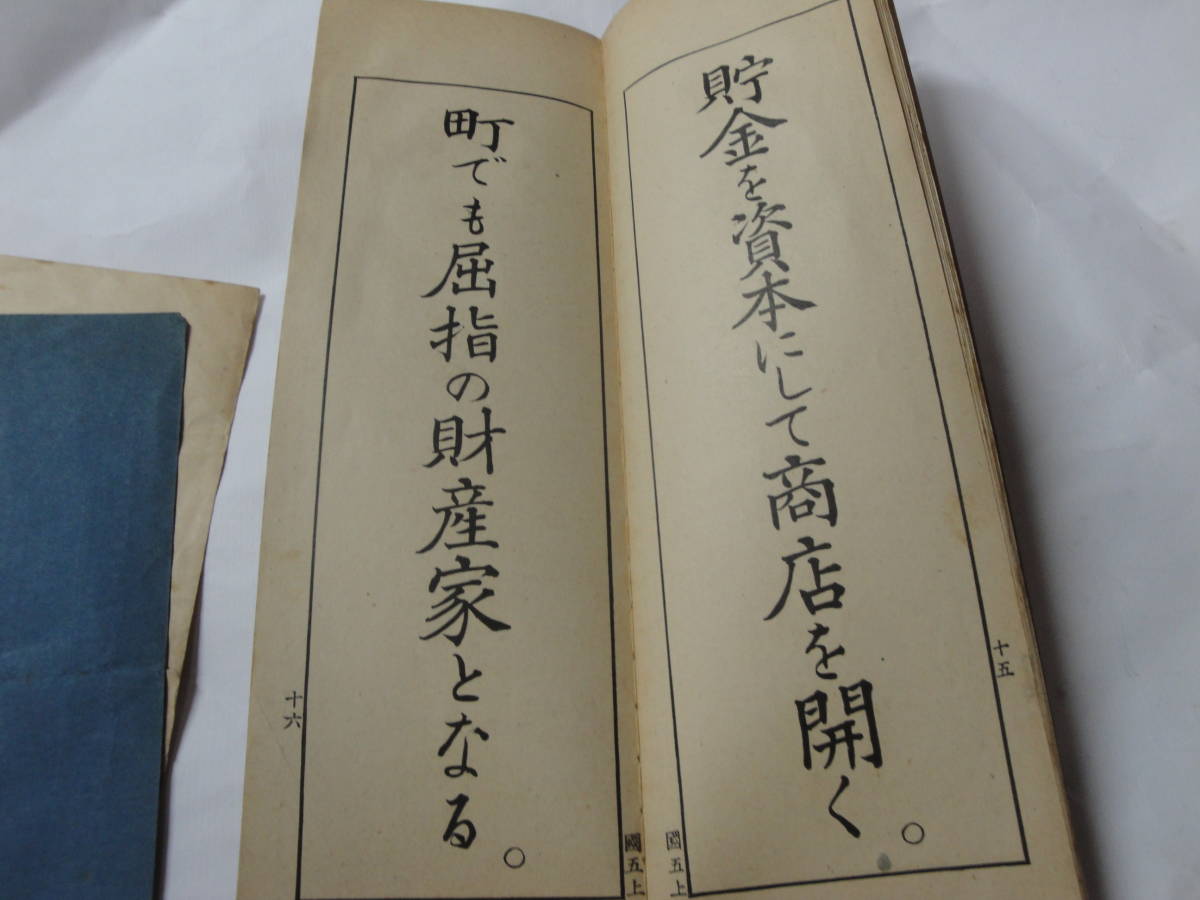 貯金を資本にして商店を開く。
十五
國五上
町でも屈指の財産家となる。
十六
國五上